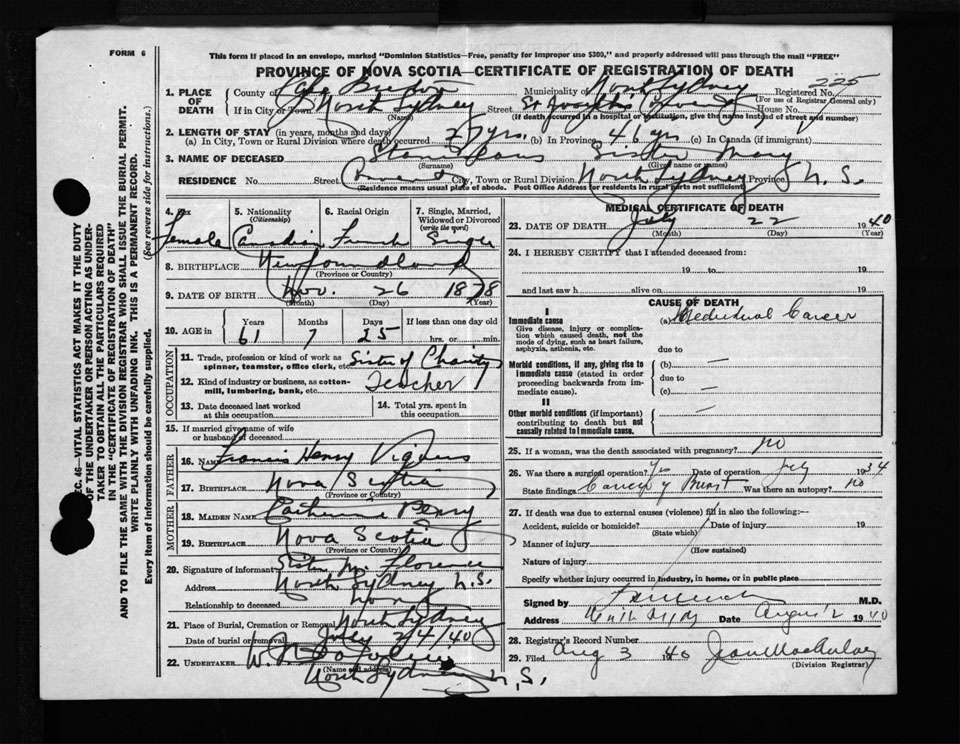 FORM 6
This form if placed in an envelope, marked "Dominion Statistics—Free, penalty for improper use $300," and properly addressed will pass through the mail "FREE"
PROVINCE OF NOVA SCOTIA—CERTIFICATE OF REGISTRATION OF DEATH
SEC. 46—VITAL STATISTICS ACT MAKES IT THE DUTY
OF THE UNDERTAKER OR PERSON ACTING AS UNDER-
TAKER TO OBTAIN ALL THE PARTICULARS REQUIRED
IN THE "CERTIFICATE OF REGISTRATION OF DEATH"
AND TO FILE THE SAME WITH THE DIVISION REGISTRAR WHO SHALL ISSUE THE BURIAL PERMIT.
WRITE PLAINLY WITH UNFADING INK. THIS IS A PERMANENT RECORD.
Every item of information should be carefully supplied. (See reverse side for instructions.)
1. PLACE OF DEATH County of Cape Breton Municipality of North Sydney Registered No. 225
(For use of Registrar General only)
If in City or Town North Sydney Street St Joseph's Convent House No.
(Name) (If death occurred in a hospital or institution, give the name instead of street and number)
2. LENGTH OF STAY (in years, months and days)
(a) In City, Town or Rural Division where death occurred 27 yrs. (b) In Province 46 yrs (c) In Canada (if immigrant)
3. NAME OF DECEASED Sister Mary
(Surname) (Given name or names)
RESIDENCE No. Street Convent City, Town or Rural Division North Sydney Province N.S.
(Residence means usual place of abode. Post Office Address for residents in rural parts not sufficient)
4. Sex Female
5. Nationality (Citizenship) Canadian
6. Racial Origin French
7. Single, Married, Widowed or Divorced (write the word) Single
8. BIRTHPLACE Newfoundland
(Province or Country)
9. DATE OF BIRTH Nov. 26 1878
(Month) (Day) (Year)
10. AGE in Years 61 Months 7 Days 25 If less than one day old hrs. or min.
OCCUPATION
11. Trade, profession or kind of work as spinner, teamster, office clerk, etc. Sister of Charity
12. Kind of industry or business, as cotton-mill, lumbering, bank, etc. Teacher
13. Date deceased last worked at this occupation
14. Total yrs. spent in this occupation
15. If married give name of wife or husband of deceased
FATHER
16. NAME Francis Henry Vigneus
17. BIRTHPLACE Nova Scotia
(Province or Country)
MOTHER
18. MAIDEN NAME Catherine Penny
19. BIRTHPLACE Nova Scotia
(Province or Country)
20. Signature of informant Sister M. Florence
Address North Sydney N.S.
Relationship to deceased
21. Place of Burial, Cremation or Removal North Sydney
Date of burial or removal July 24/40
22. UNDERTAKER W.
(Name and address)
North Sydney N.S.
MEDICAL CERTIFICATE OF DEATH
23. DATE OF DEATH July 22 1940
(Month) (Day) (Year)
24. I HEREBY CERTIFY that I attended deceased from:
19 to 19
and last saw h alive on 19
CAUSE OF DEATH
I
Immediate cause (a) Cancer
Give disease, injury or complication which caused death, not the mode of dying, such as heart failure, asphyxia, asthenia, etc.
due to
Morbid conditions, if any, giving rise to immediate cause (stated in order proceeding backwards from immediate cause). (b) —
due to
(c) —
II
Other morbid conditions (if important) contributing to death but not causally related to immediate cause. —
25. If a woman, was the death associated with pregnancy? no
26. Was there a surgical operation? Yes Date of operation July 1934
State findings Cancer of Breast Was there an autopsy? no
27. If death was due to external causes (violence) fill in also the following:—
Accident, suicide or homicide? Date of injury 19
(State which)
Manner of injury
(How sustained)
Nature of injury
Specify whether injury occurred in industry, in home, or in public place
Signed by M.D.
Address North Sydney Date Aug 2 1940
28. Registrar's Record Number
29. Filed Aug 3 1940 Jean MacAulay
(Division Registrar)